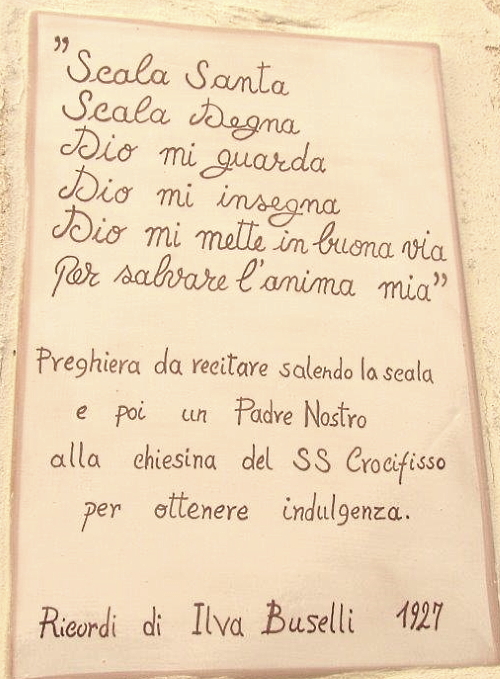 "Scala Santa
Scala Degna
Dio mi guarda
Dio mi insegna
Dio mi mette in buona via
Per salvare l'anima mia"
Preghiera da recitare salendo la scala
e poi un Padre Nostro
alla chiesina del SS Crocifisso
per ottenere indulgenza.
Ricordi di Ilva Buselli 1927